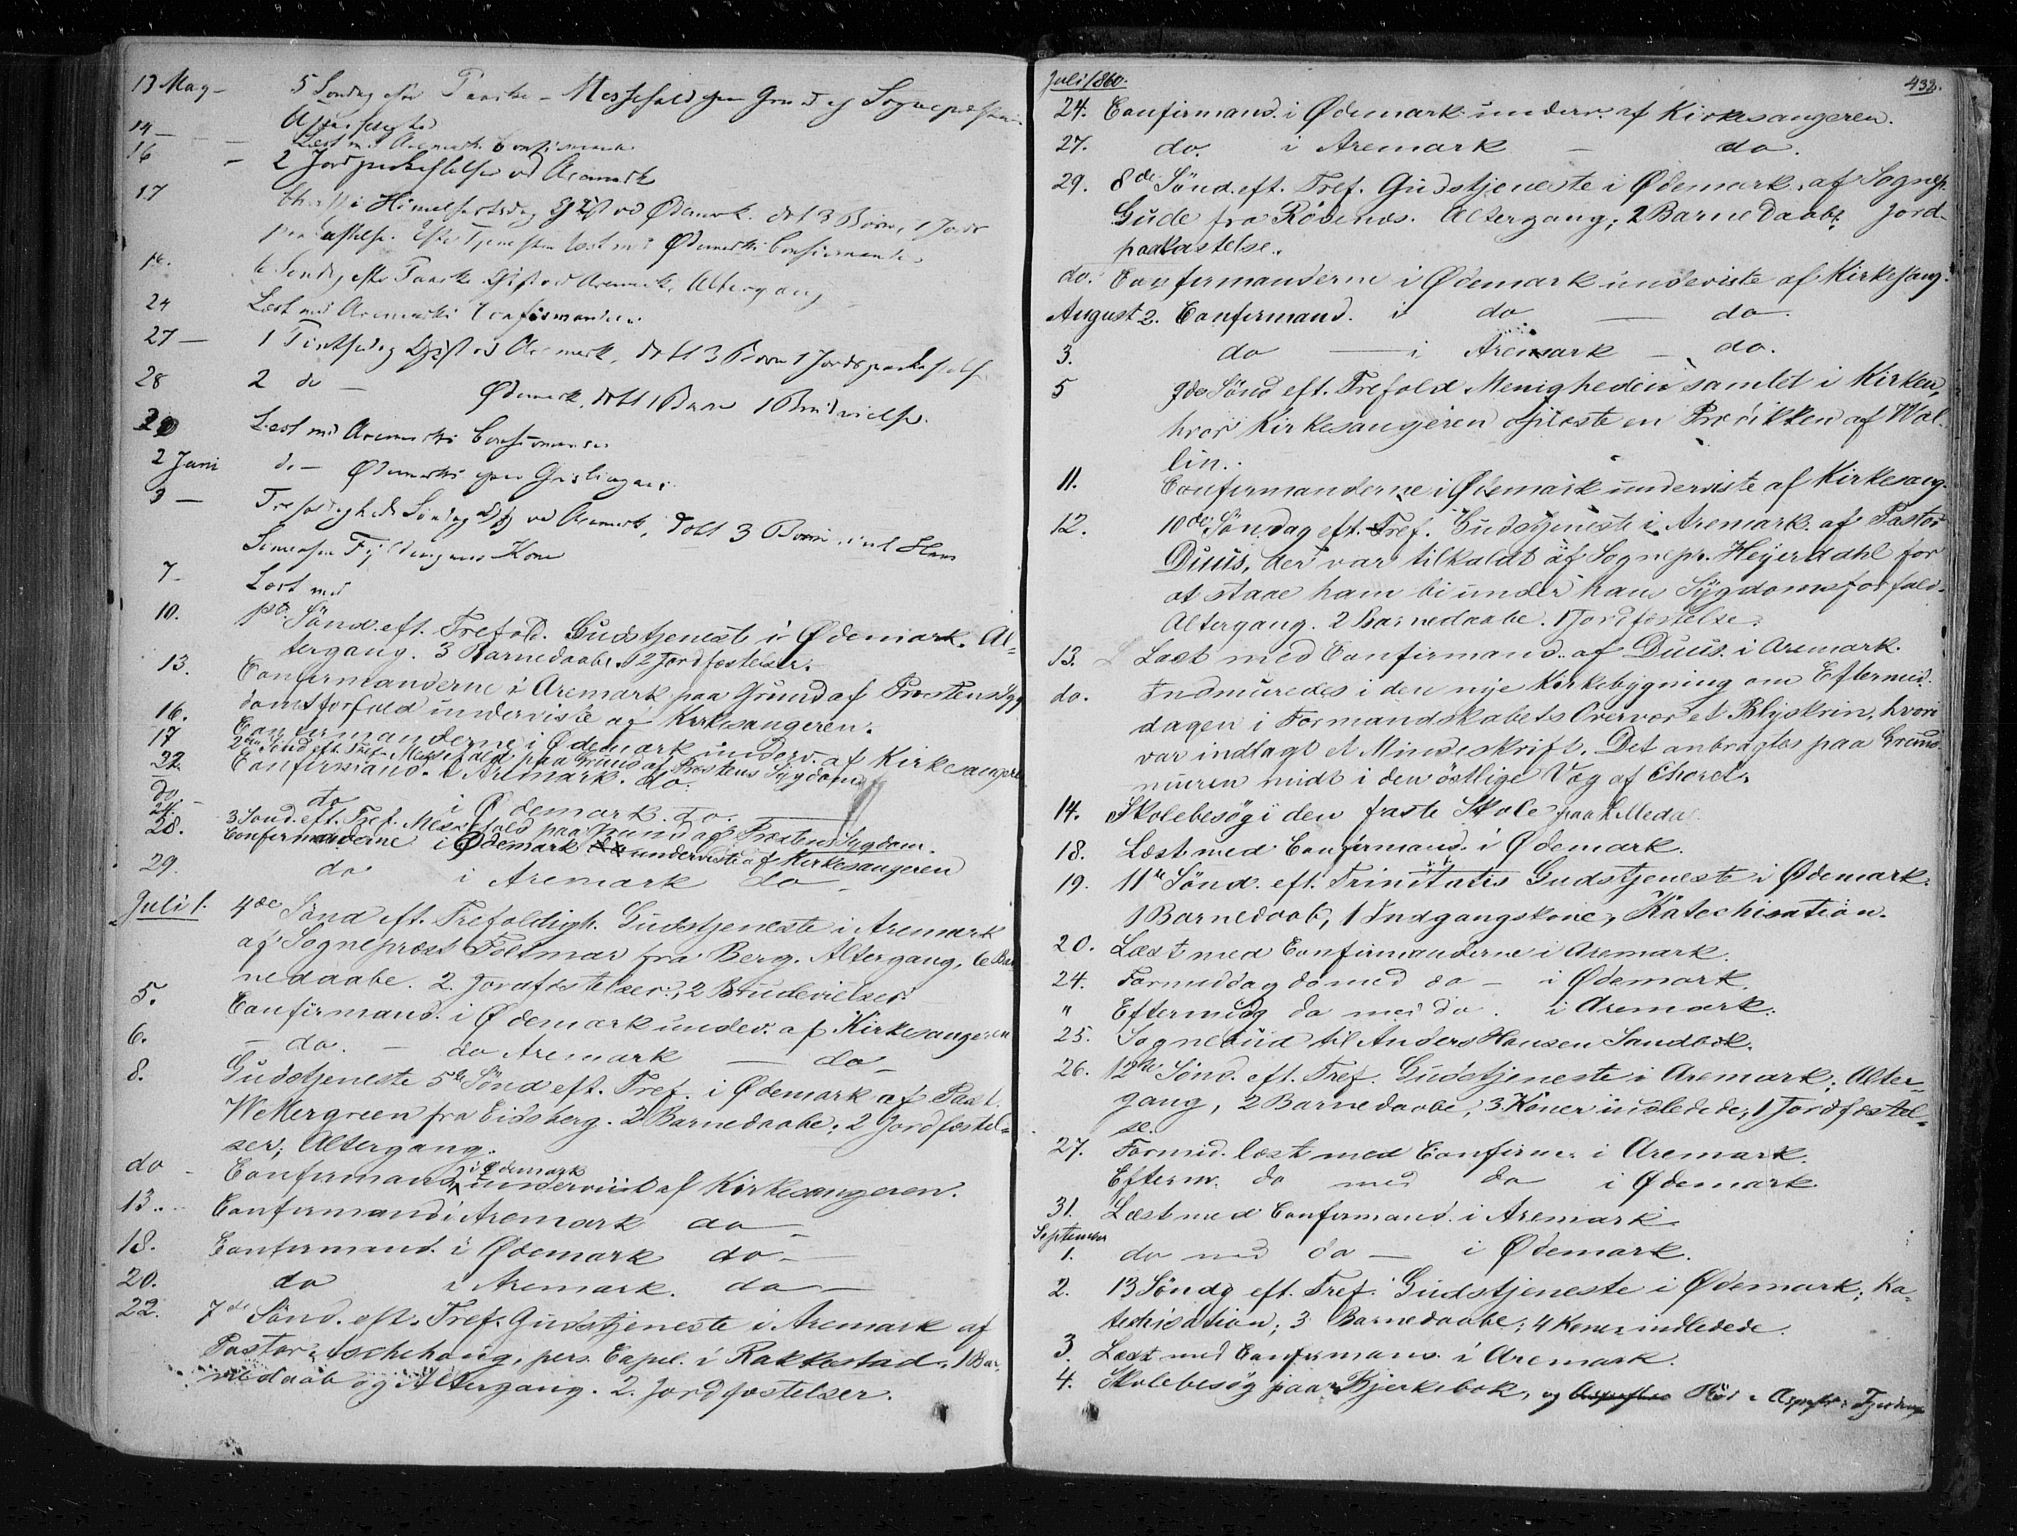 13 May – 5 Søndag efter Paaske – Messefald paa Grund af Sognepræstens
14 –
Læst med Aremarks Confirmanter
16 – 2 Jordpaakastelser ved Aremark
17 Christi Himmelfartsdag Gtjst ved Ødemark. døbt 3 Børn, 1 Jords
paakastelse. Efter Tjenesten læst med Ødemarks Confirmanter
6 Søndag efter Paaske Gtjst ved Aremark, Altergang
24 Læst med Aremarks Confirmander
27 – 1 Pintsedag Gtjst ved Aremark, døbt 3 Børn 1 Jordspaakastelse
28 2 do – Ødemark, døbt 1 Barn 1 Brudevielse.
Læst med Aremarks Confirmander
2 Juni do – Ødemarks
3 – Trefoldigheds Søndag Gtj ved Aremark, døbt 3 Børn
Kone
7 – Læst med
10. Sönd. eft. Trefold. Gudstjeneste i Ødemark. Al=
tergang. 3 Barnedaabe. 2 Jordfæstelser.
13. Confirmanderne i Aremark paa Grund af Præstens Syg
domsforfald underviste af Kirkesangeren.
16. Confirmanderne i Ødemark underv. af Kirkesangeren
17 2den Sönd. eft. Tref. Messefald paa Grund af Præstens Sygdom
22 Confirmand. i Aremark. do.
do. – do i Ødemark. do. –
24. 3 Sönd. eft. Tref. Messefald paa Grund af Præstens Sygdom.
28. Confirmanderne i Ødemark underviste af Kirkesangeren
29. do i Aremark do –
Juli 1. 4de Sönd eft. Trefoldigh. Gudstjeneste i Aremark
af Sognepræst Foltmar fra Berg. Altergang, 6 Bar
nedaabe. 2 Jordfæstelser, 2 Brudevielser.
5. Confirmand. i Ødemark underv. af Kirkesangeren
6. – do. – do Aremark – do –
8. Gudstjeneste 5te Sönd eft. Tref. i Ødemark af Past.
Wettergreen fra Eidsberg. 2 Barnedaabe; 2 Jordfæstel=
ser; Altergang.
do – Confirmand i Ødemark undervist af Kirkesangeren.
13. Confirmand i Aremark do –
18. Confirmand. i Ødemark do –
20. do i Aremark. do –
22. 7de Sönd. eft. Tref. Gudstjeneste i Aremark af
Pastor pers. Capel. i Rakkestad, 1 Bar
nedaab og Altergang. 2 Jordfæstelser.
Juli 1860. 432.
24. Confirmand. i Ødemark underv. af Kirkesangeren.
27. do. i Aremark – do.
29. 8de Sönd. eft. Tref. Gudstjeneste i Ødemark, af Sognep.
Gude fra Rødenes. Altergang; 2 Barnedaabe; Jord=
paakastelse.
do. Confirmanderne i Ødemark underviste af Kirkesang.
August 2. Confirmand. i do – do –
3. do – i Aremark – do.
5 9de Sönd eft. Trefold Menigheden samlet i Kirken,
hvor Kirkesangeren oplæste en Prædikken af Wal
lin.
11. Confirmanderne i Ødemark underviste af Kirkesang.
12. 10de Söndag eft. Tref. Gudstjeneste i Aremark af Pastor
Duus, der var tilkaldt af Sognepr. Heyerdahl for
at staae ham bi under hans Sygdomsforfald.
Altergang. 2 Barnedaabe. 1 Jordfæstelse.
13. Læst med Confirmand. af Duus i Aremark.
do. Indmuredes i den nye Kirkebygning om Eftermid.
dagen i Formandskabets Overvær et Blyskrin, hvori
var indlagt et Mindeskrift. Det anbragtes paa Grund
muren midt i den östlige Væg af Choret.
14. Skolebesøg i den faste Skole paa Killedal
18. Læst med Confirmand. i Ødemark.
19. 11te Sönd. eft. Trinitatis Gudstjeneste i Ødemark.
1 Barnedaab, 1 Indgangskone, Katechisation.
20. Læst med Confirmanderne i Aremark.
24. Formiddag do med do – i Ødemark.
" Eftermidg do med do. i Aremark.
25. Sognebud til Anders Hansen Sandbæk.
26. 12te Sönd. eft. Tref. Gudstjeneste i Aremark; Alter=
gang, 2 Barnedaabe, 3 Koner indledede; 1 Jordfæstel=
se.
27. Formid. læst med Confirm. i Aremark.
Efterm. do med do i Ødemark.
31. Læst med Confirmand. i Aremark
September
1. do med do – i Ødemark.
2. 13 Söndg eft. Tref. Gudstjeneste i Ødemark; Ka=
techisation; 3 Barnedaabe; 4 Koner indledede.
3. Læst med Confirmand. i Aremark.
4. Skolebesøg paa Bjerkebæk, og